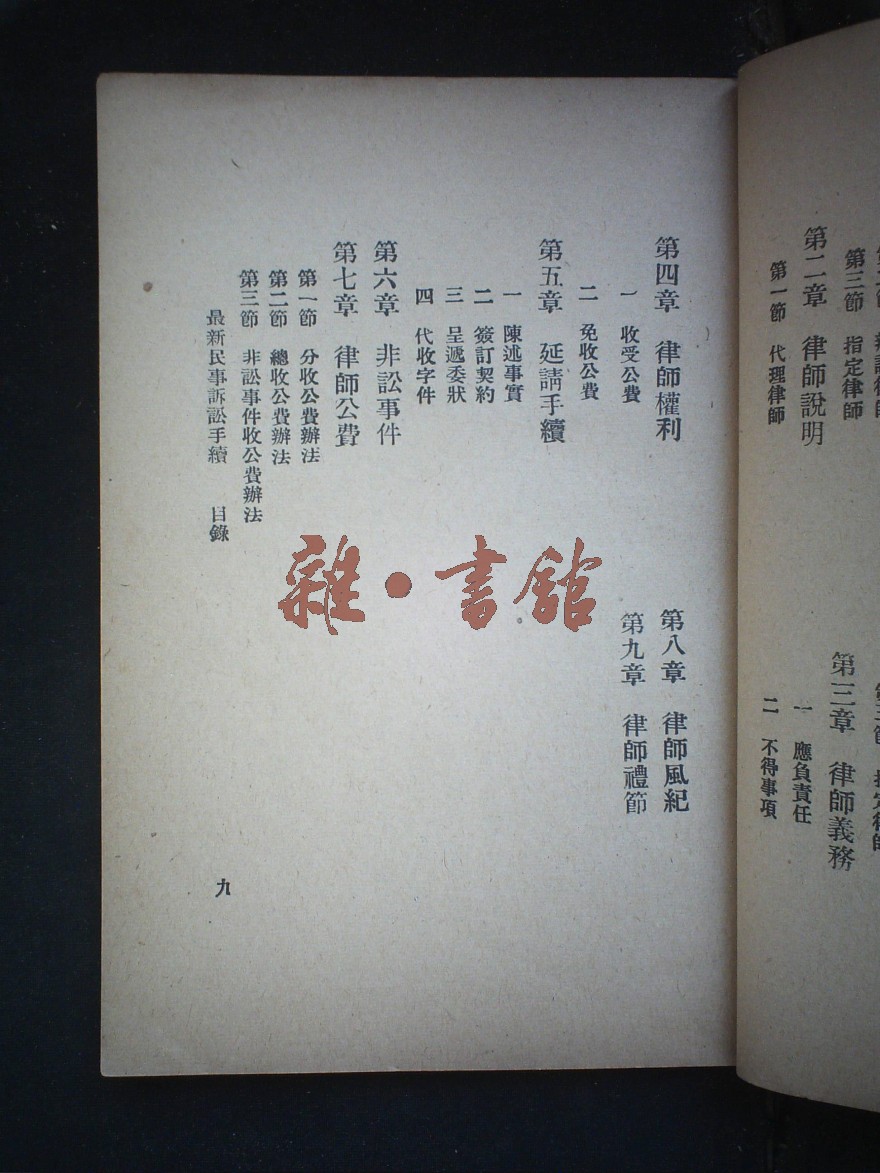 第二章 律師說明
第三節 指定律師
第一節 代理律師
第三章 律師義務
一 應負責任
二 不得事項
第四章 律師權利
一 收受公費
二 免收公費
第五章 延請手續
一 陳述事實
二 簽訂契約
三 呈遞委狀
四 代收字件
第六章 非訟事件
第七章 律師公費
第一節 分收公費辦法
第二節 總收公費辦法
第三節 非訟事件收公費辦法
第八章 律師風紀
第九章 律師禮節
最新民事訴訟手續 目錄
九
雜·書館